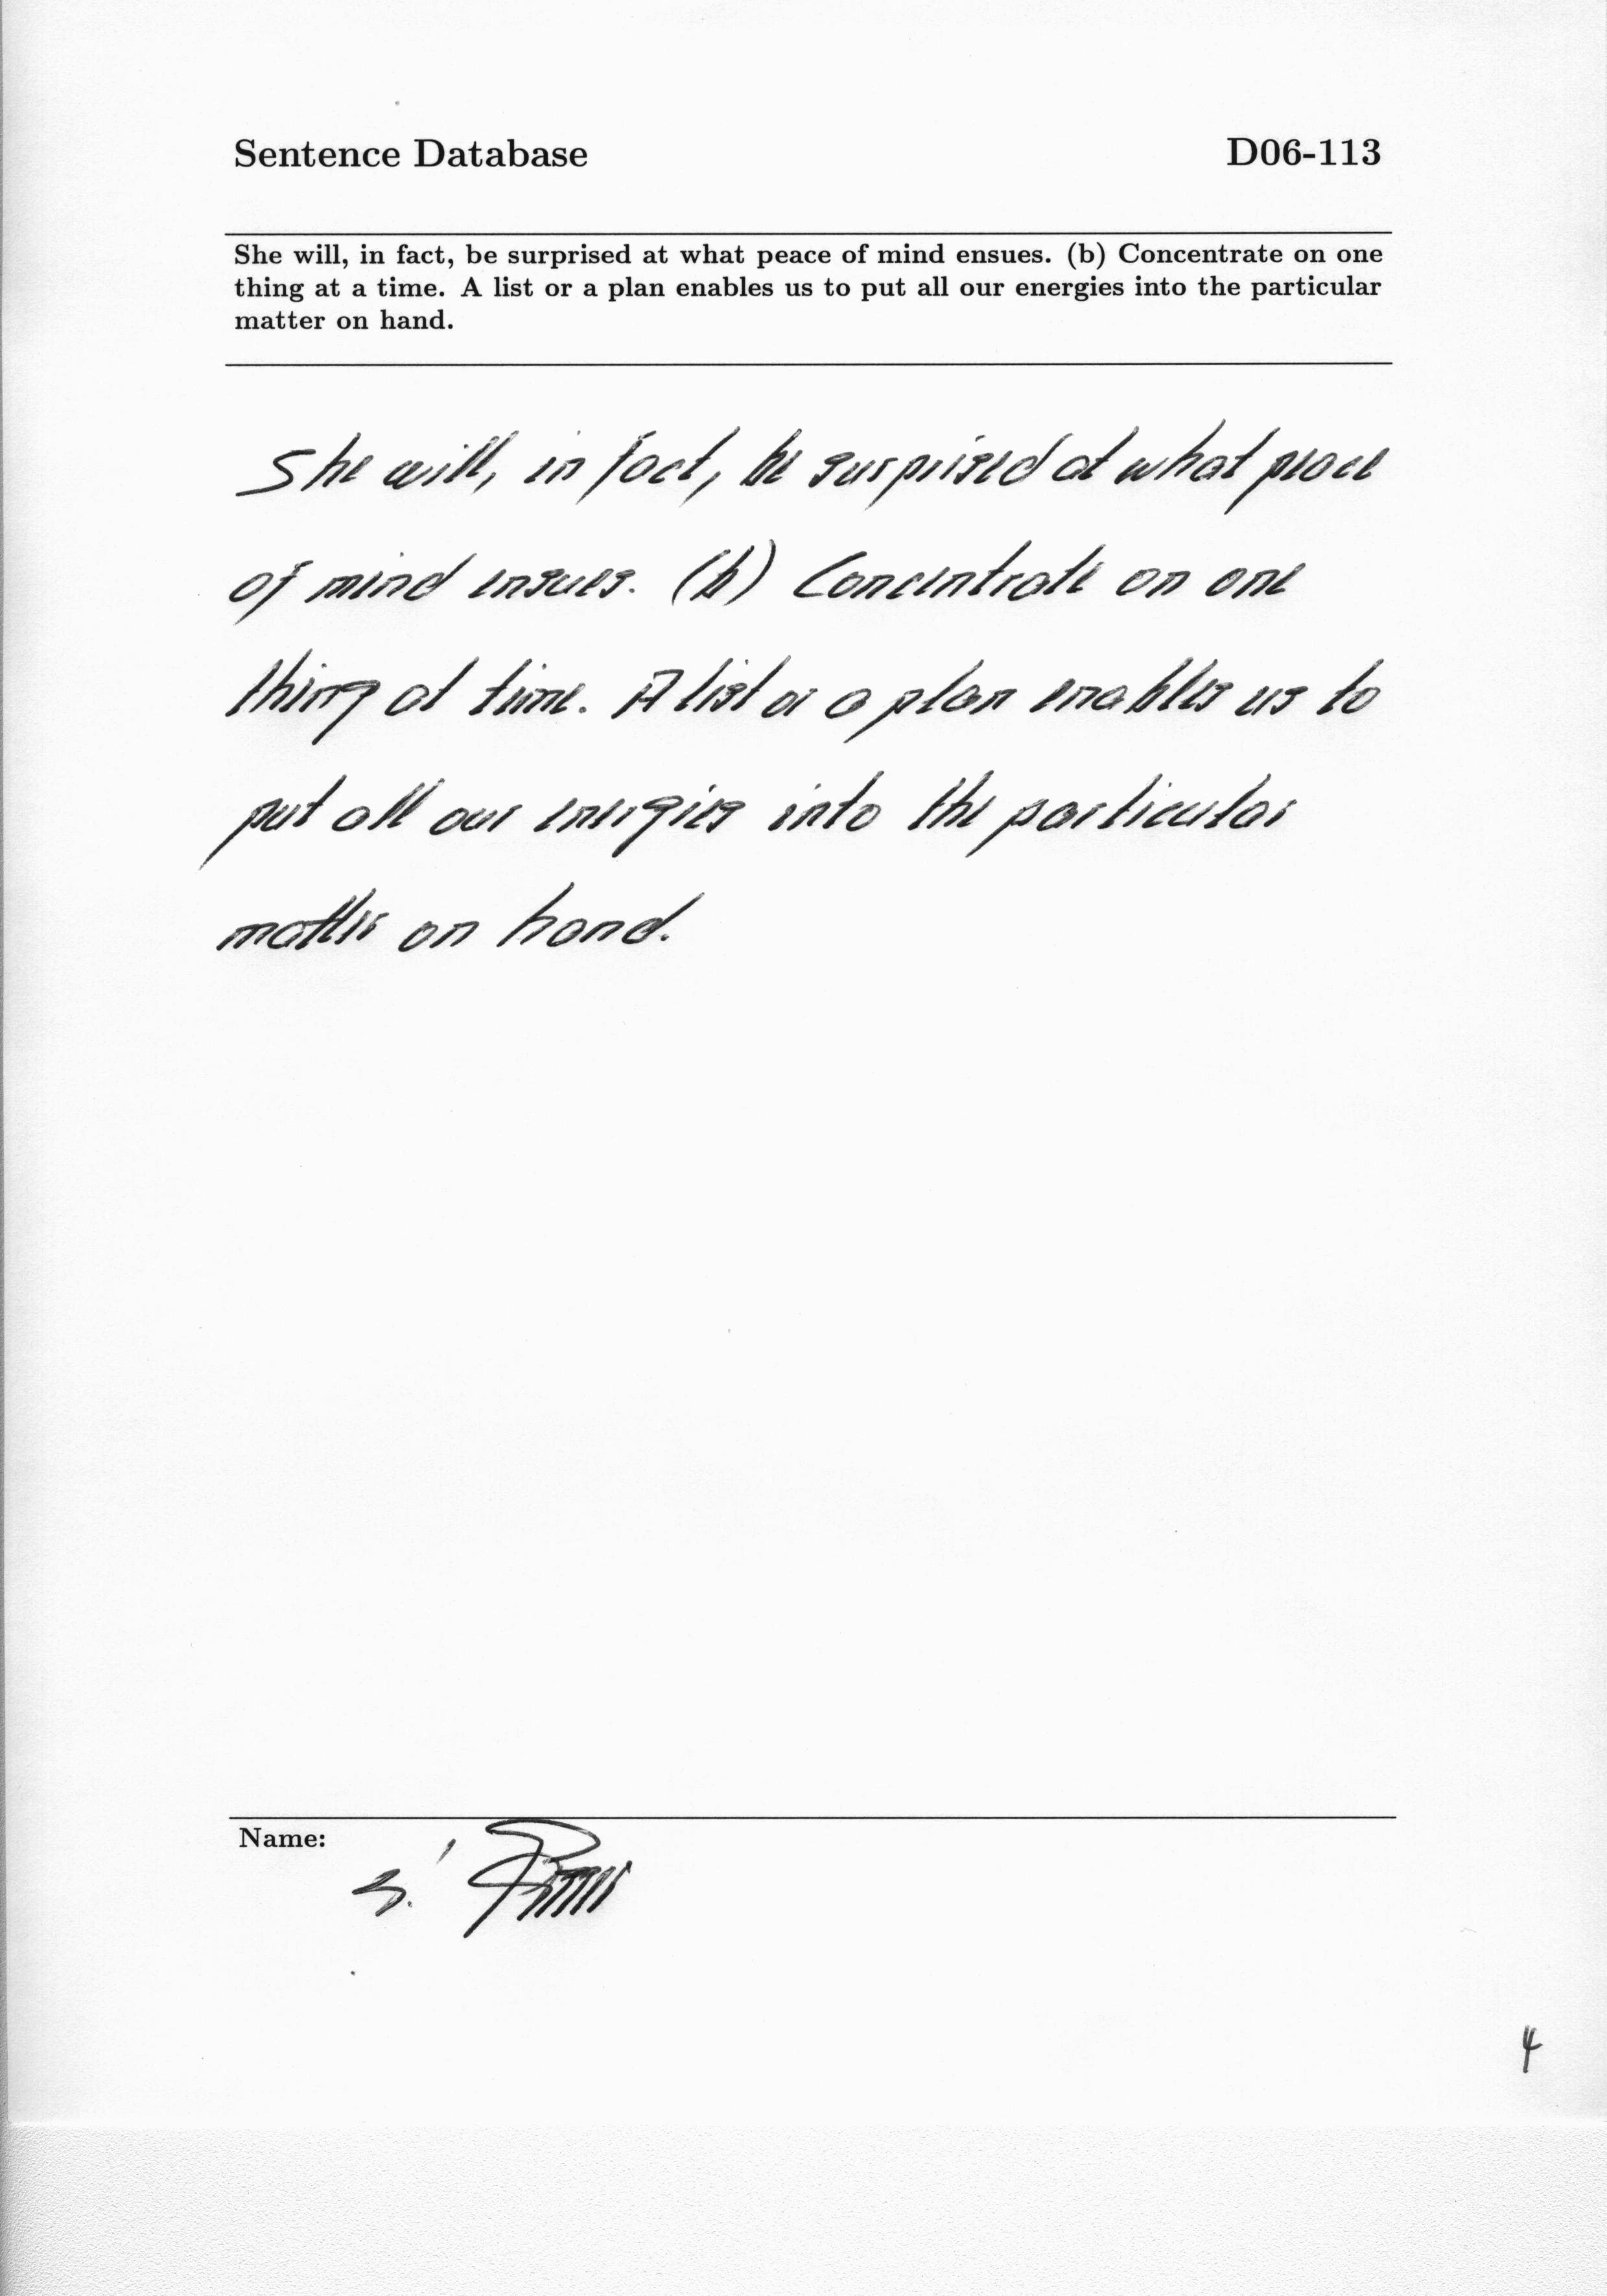 Sentence Database D06-113
She will, in fact, be surprised at what peace of mind ensues. (b) Concentrate on one
thing at a time. A list or a plan enables us to put all our energies into the particular
matter on hand.
She will, in fact, be surprised at what peace
of mind ensues. (b) Concentrate on one
thing at time. A list or a plan enables us to
put all our energies into the particular
matter on hand.
Name:
4